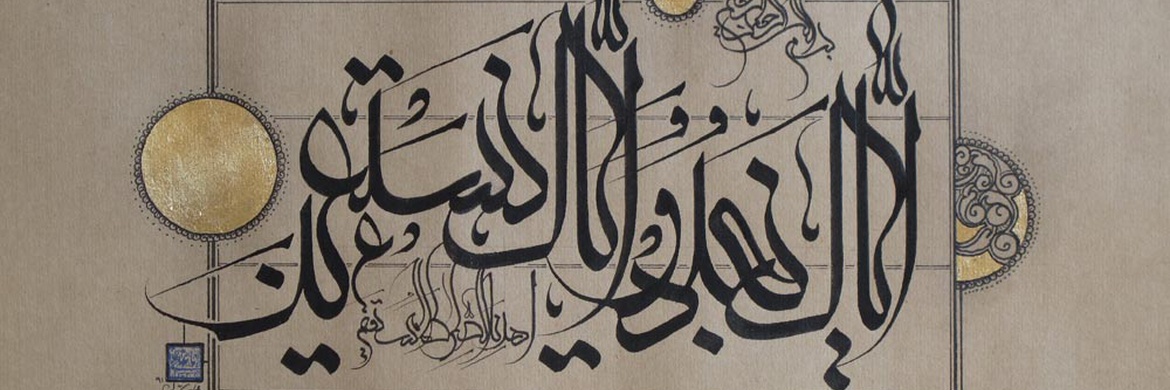 إياك نعبد وإياك نستعين
اهدنا الصراط المستقيم